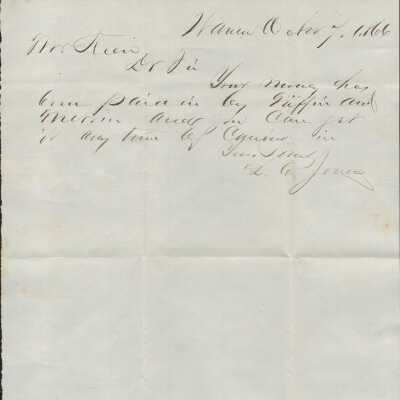 Warren O Nov 7, 1866
Dr Sir
Your money has
been paid in by Giffin and
and you can get
it any time by
in
Yours Truly
L. C. Jones